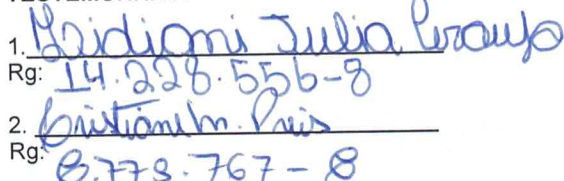 1. Heidiani Julia Araujo
Rg: 14.228.556-8
2. Cristiane m. Reis
Rg: 8.779.767-8